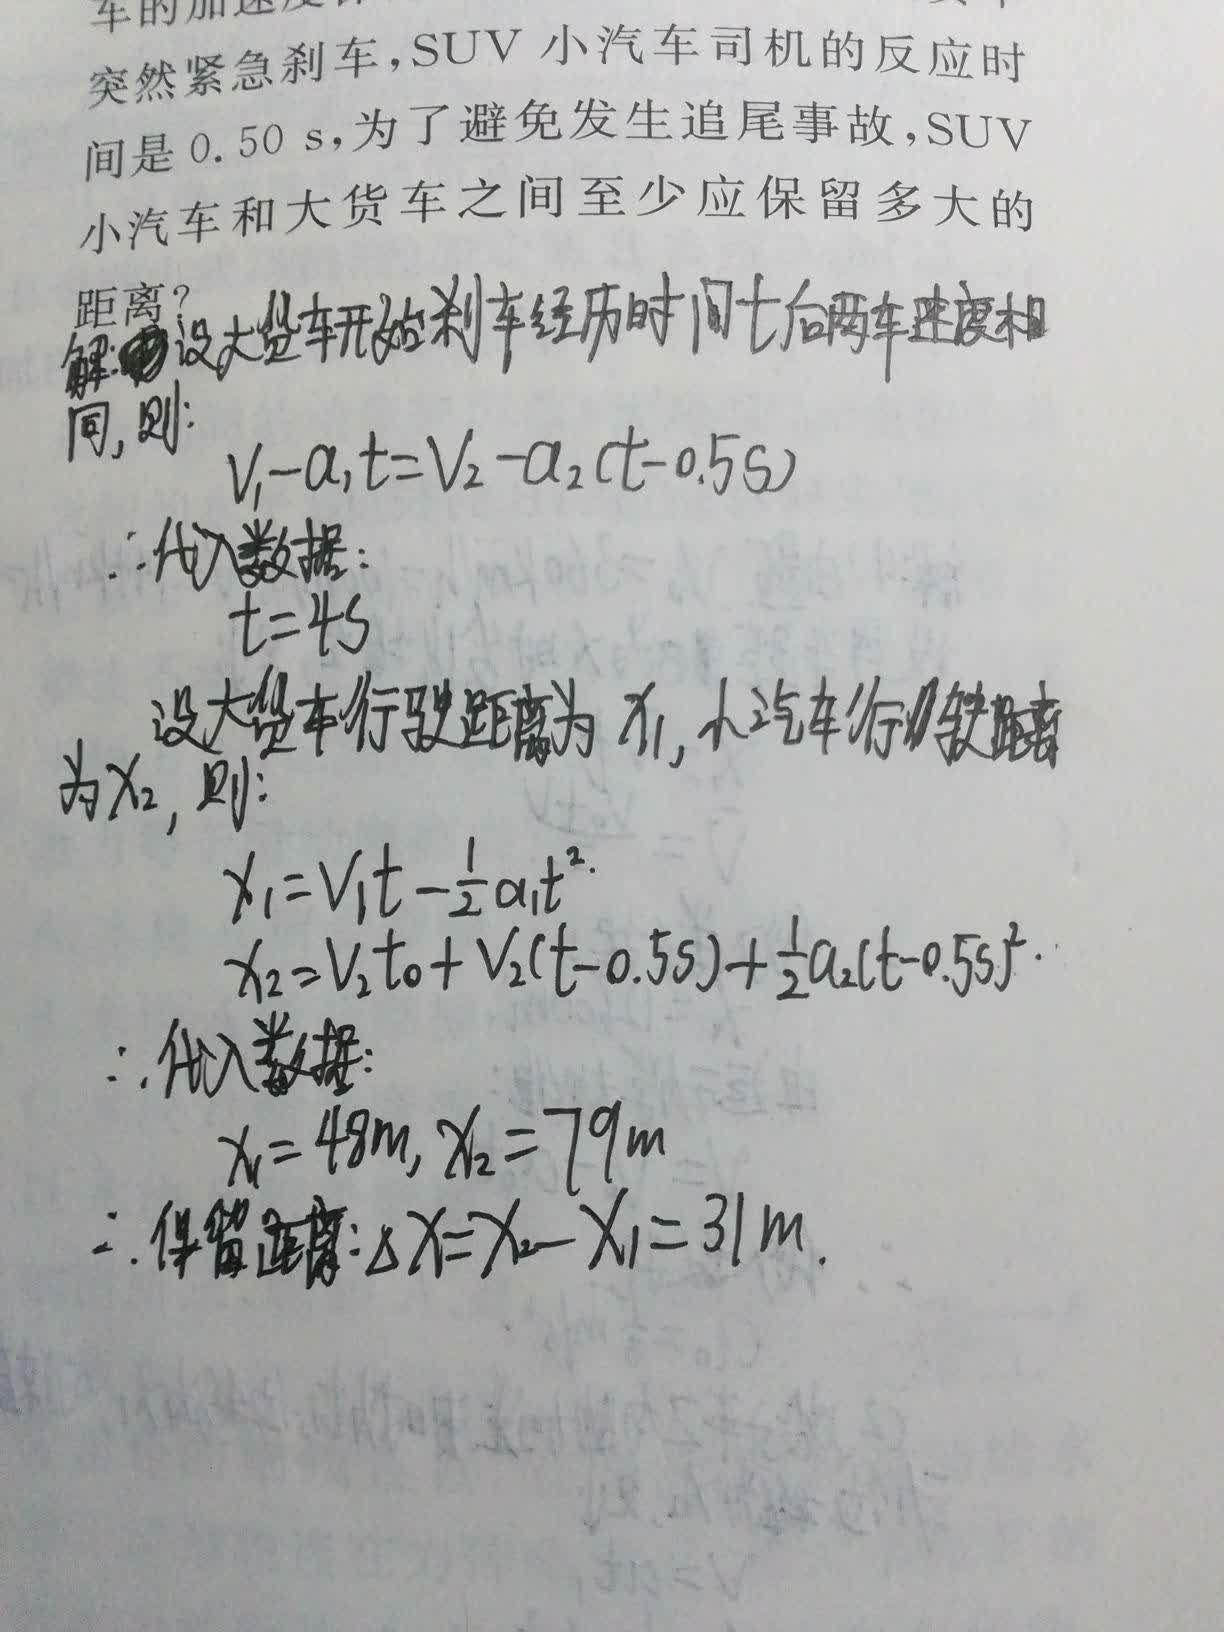 车的加速度
突然紧急刹车,SUV 小汽车司机的反应时
间是 0.50 s,为了避免发生追尾事故,SUV
小汽车和大货车之间至少应保留多大的
距离?
解:设大货车开始刹车经历时间t后两车速度相
同,则:
V₁-a₁t=V₂-a₂(t-0.5s)
∴代入数据:
t=4s
设大货车行驶距离为 x₁,小汽车行驶距离
为x₂,则:
x₁=V₁t-½a₁t².
x₂=V₂t₀+V₂(t-0.5s)+½a₂(t-0.5s)².
∴代入数据:
x₁=48m,x₂=79m
∴保留距离:△x=x₂-x₁=31m.